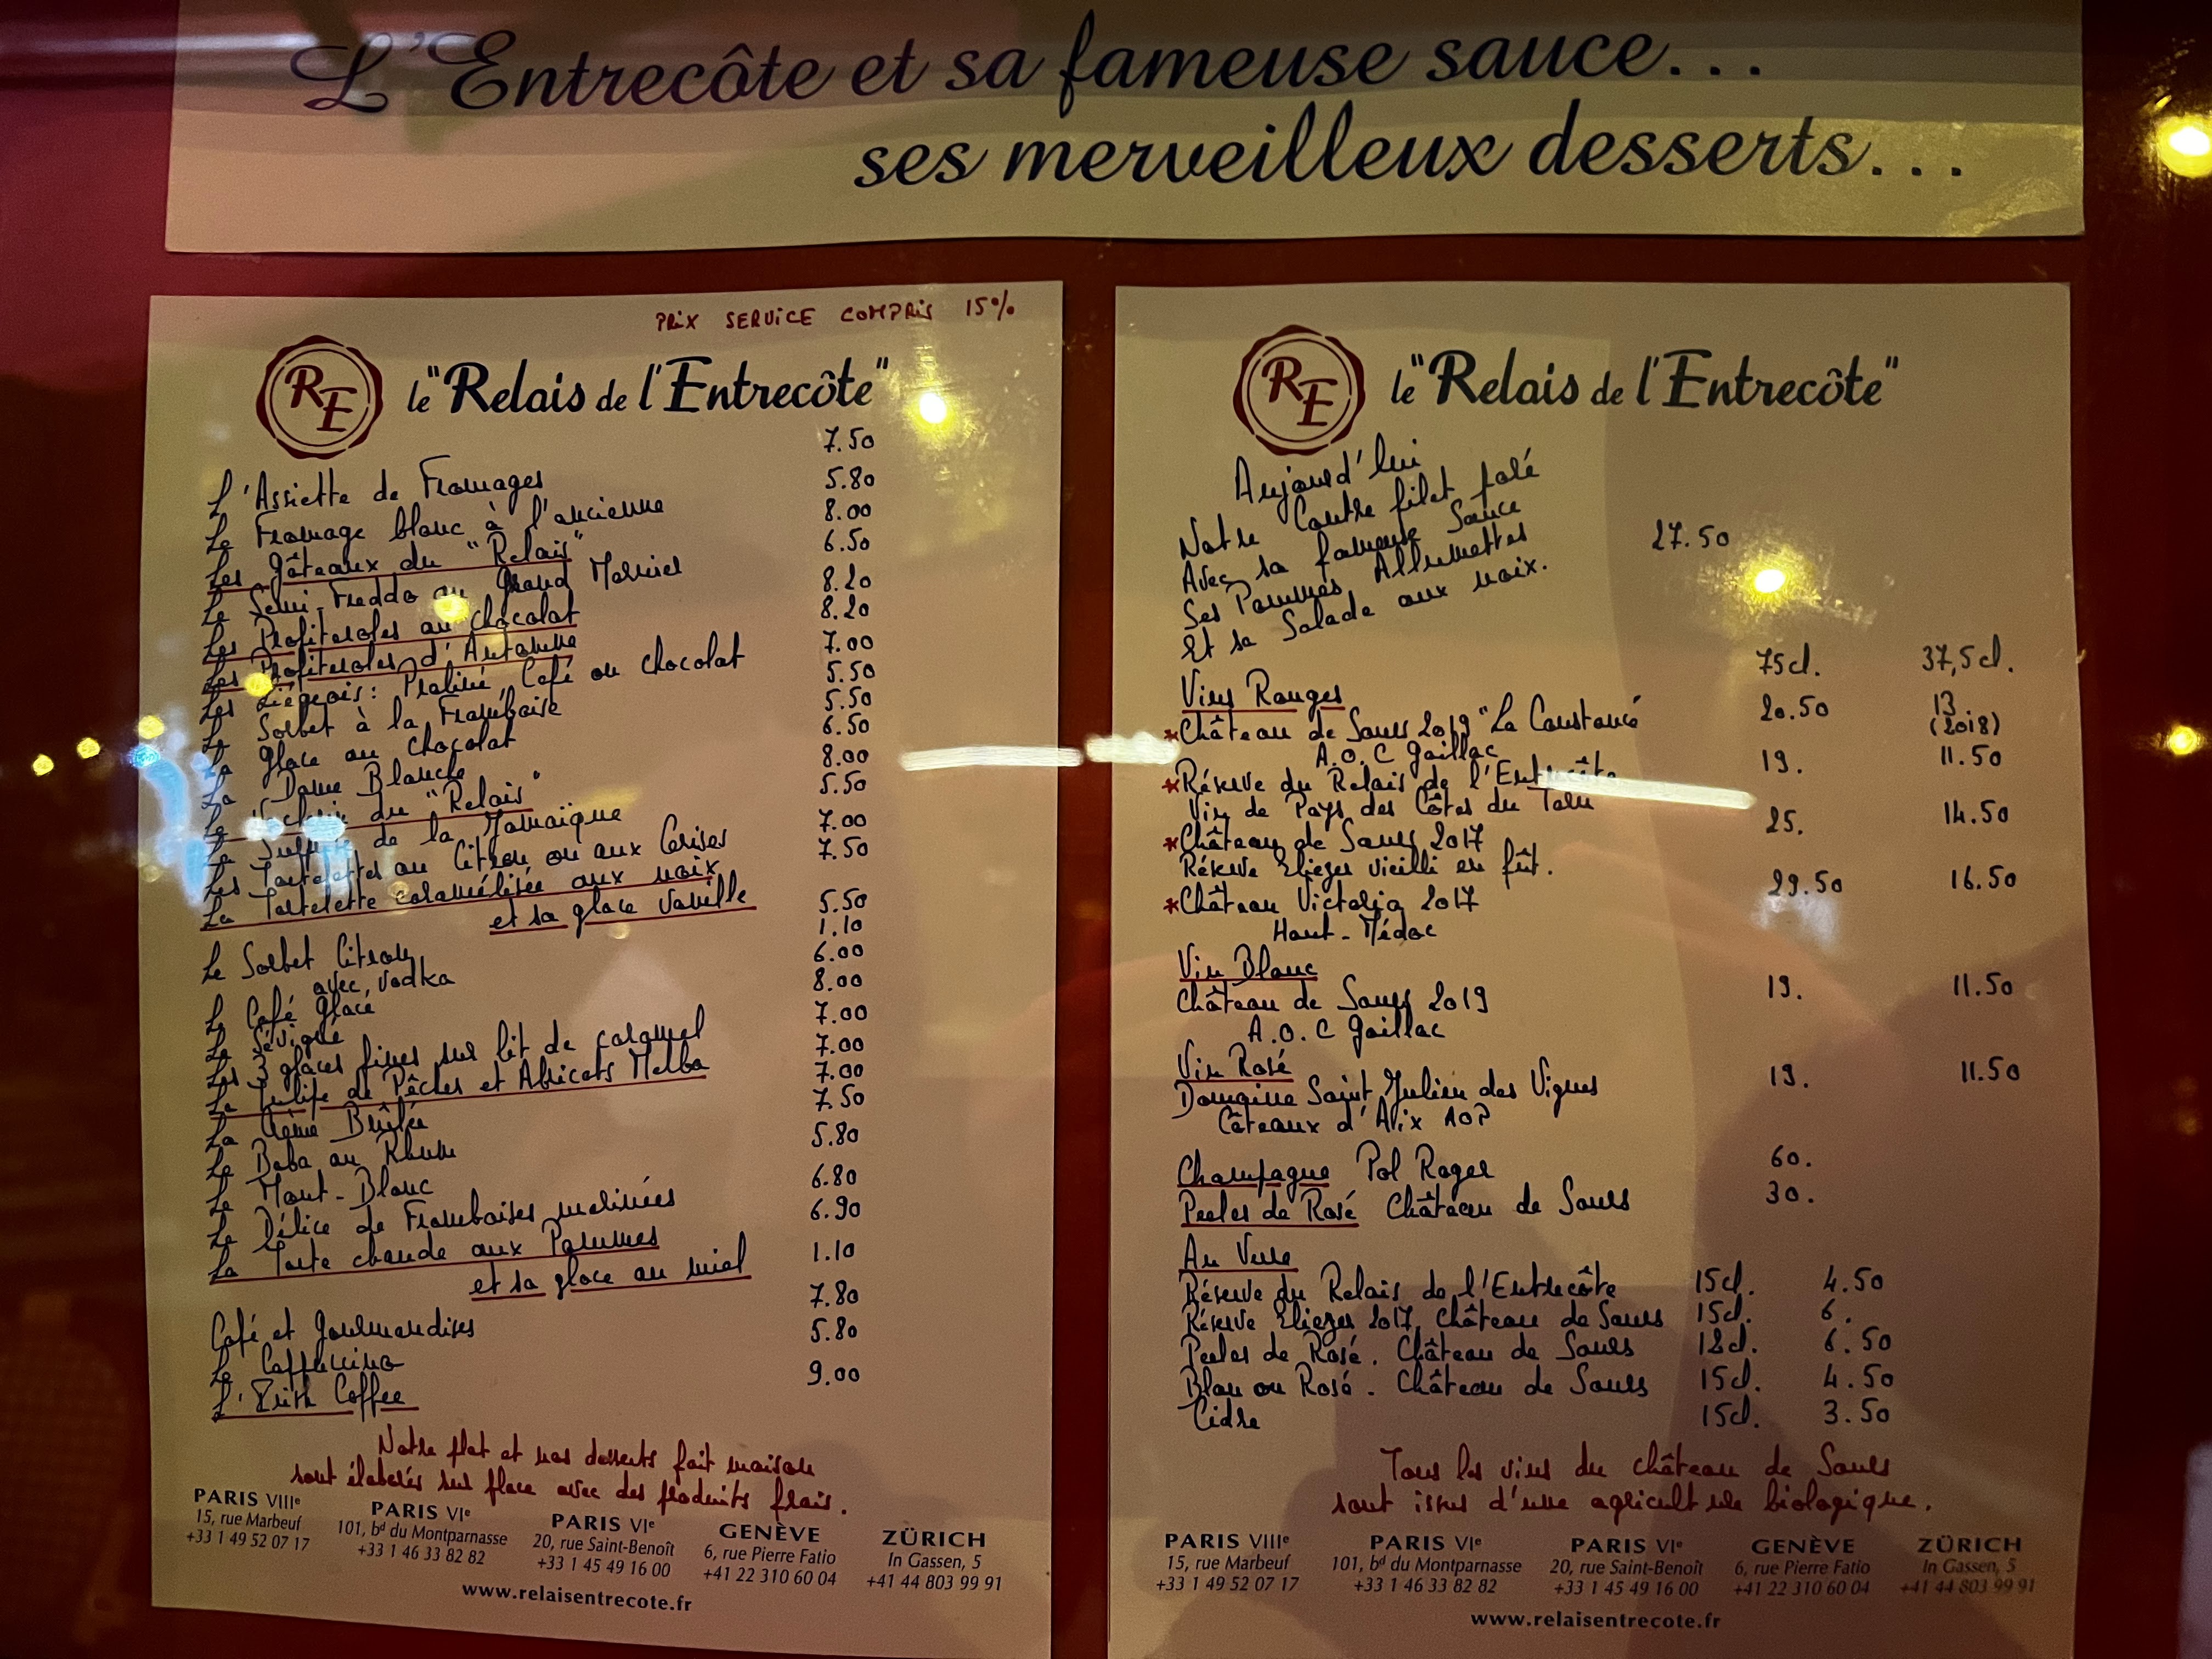 L'Entrecôte et sa fameuse sauce...
ses merveilleux desserts...
PRIX SERVICE COMPRIS 15%
RE le "Relais de l'Entrecôte"
L'Assiette de Fromages 7.50
Le Fromage blanc à l'ancienne 5.80
Les Gâteaux du "Relais" 8.00
Le Semi-Freddo au Grand Marnier 6.50
Les Profiteroles au Chocolat 8.20
Les Profiteroles d'Automne 8.20
Les Liégeois: Praliné, Café ou chocolat 7.00
Le Sorbet à la Framboise 5.50
La glace au chocolat 5.50
La Dame Blanche 6.50
Le Vacherin du "Relais" 8.00
La Surprise de la Jamaïque 5.50
Les Tartelettes au Citron ou aux Cerises 7.00
La Tartelette caramélisée aux noix 7.50
et sa glace Vanille
Le Sorbet Citron 5.50
avec Vodka 1.10
Le Café glacé 6.00
Le Sévigné 8.00
Les 3 glaces fines sur lit de caramel 7.00
La Tulipe de Pêches et Abricots Melba 7.00
La Crème Brûlée 7.00
Le Baba au Rhum 7.50
Le Mont-Blanc 5.80
Le Délice de Framboises meringuées 6.80
La Tarte chaude aux Pommes 6.90
et sa glace au miel 1.10
Café et Gourmandises 7.80
Le Cappuccino 5.80
L'Irish Coffee 9.00
Notre plat et nos desserts fait maison
sont élaborés sur place avec des produits frais.
PARIS VIIIe PARIS VIe PARIS VIe GENÈVE ZÜRICH
15, rue Marbeuf 101, bd du Montparnasse 20, rue Saint-Benoît 6, rue Pierre Fatio In Gassen, 5
+33 1 49 52 07 17 +33 1 46 33 82 82 +33 1 45 49 16 00 +41 22 310 60 04 +41 44 803 99 91
www.relaisentrecote.fr
RE le "Relais de l'Entrecôte"
Aujourd'hui
Notre Contre filet paré
Avec sa fameuse Sauce 27.50
Ses Pommes Allumettes
Et sa Salade aux noix.
75cl. 37,5cl.
Vins Rouges
*Château de Saurs 2019 "La Constance" 20.50 13
A.O.C Gaillac (2018)
*Réserve du Relais de l'Entrecôte 19. 11.50
Vin de Pays des Côtes du Tarn
*Château de Saurs 2017 25. 14.50
Réserve Eliezer vieilli en fût.
*Château Victoria 2017 29.50 16.50
Haut-Médoc
Vin Blanc
Château de Saurs 2019 19. 11.50
A.O.C Gaillac
Vin Rosé
Domaine Saint Julien des Vignes 19. 11.50
Côteaux d'Aix AOP
Champagne Pol Roger 60.
Perles de Rosé Château de Saurs 30.
Au Verre
Réserve du Relais de l'Entrecôte 15cl. 4.50
Réserve Eliezer 2017, Château de Saurs 15cl. 6.
Perles de Rosé. Château de Saurs 12cl. 6.50
Blanc ou Rosé. Château de Saurs 15cl. 4.50
Cidre 15cl. 3.50
Tous les vins du château de Saurs
sont issus d'une agriculture biologique.
PARIS VIIIe PARIS VIe PARIS VIe GENÈVE ZÜRICH
15, rue Marbeuf 101, bd du Montparnasse 20, rue Saint-Benoît 6, rue Pierre Fatio In Gassen, 5
+33 1 49 52 07 17 +33 1 46 33 82 82 +33 1 45 49 16 00 +41 22 310 60 04 +41 44 803 99 91
www.relaisentrecote.fr